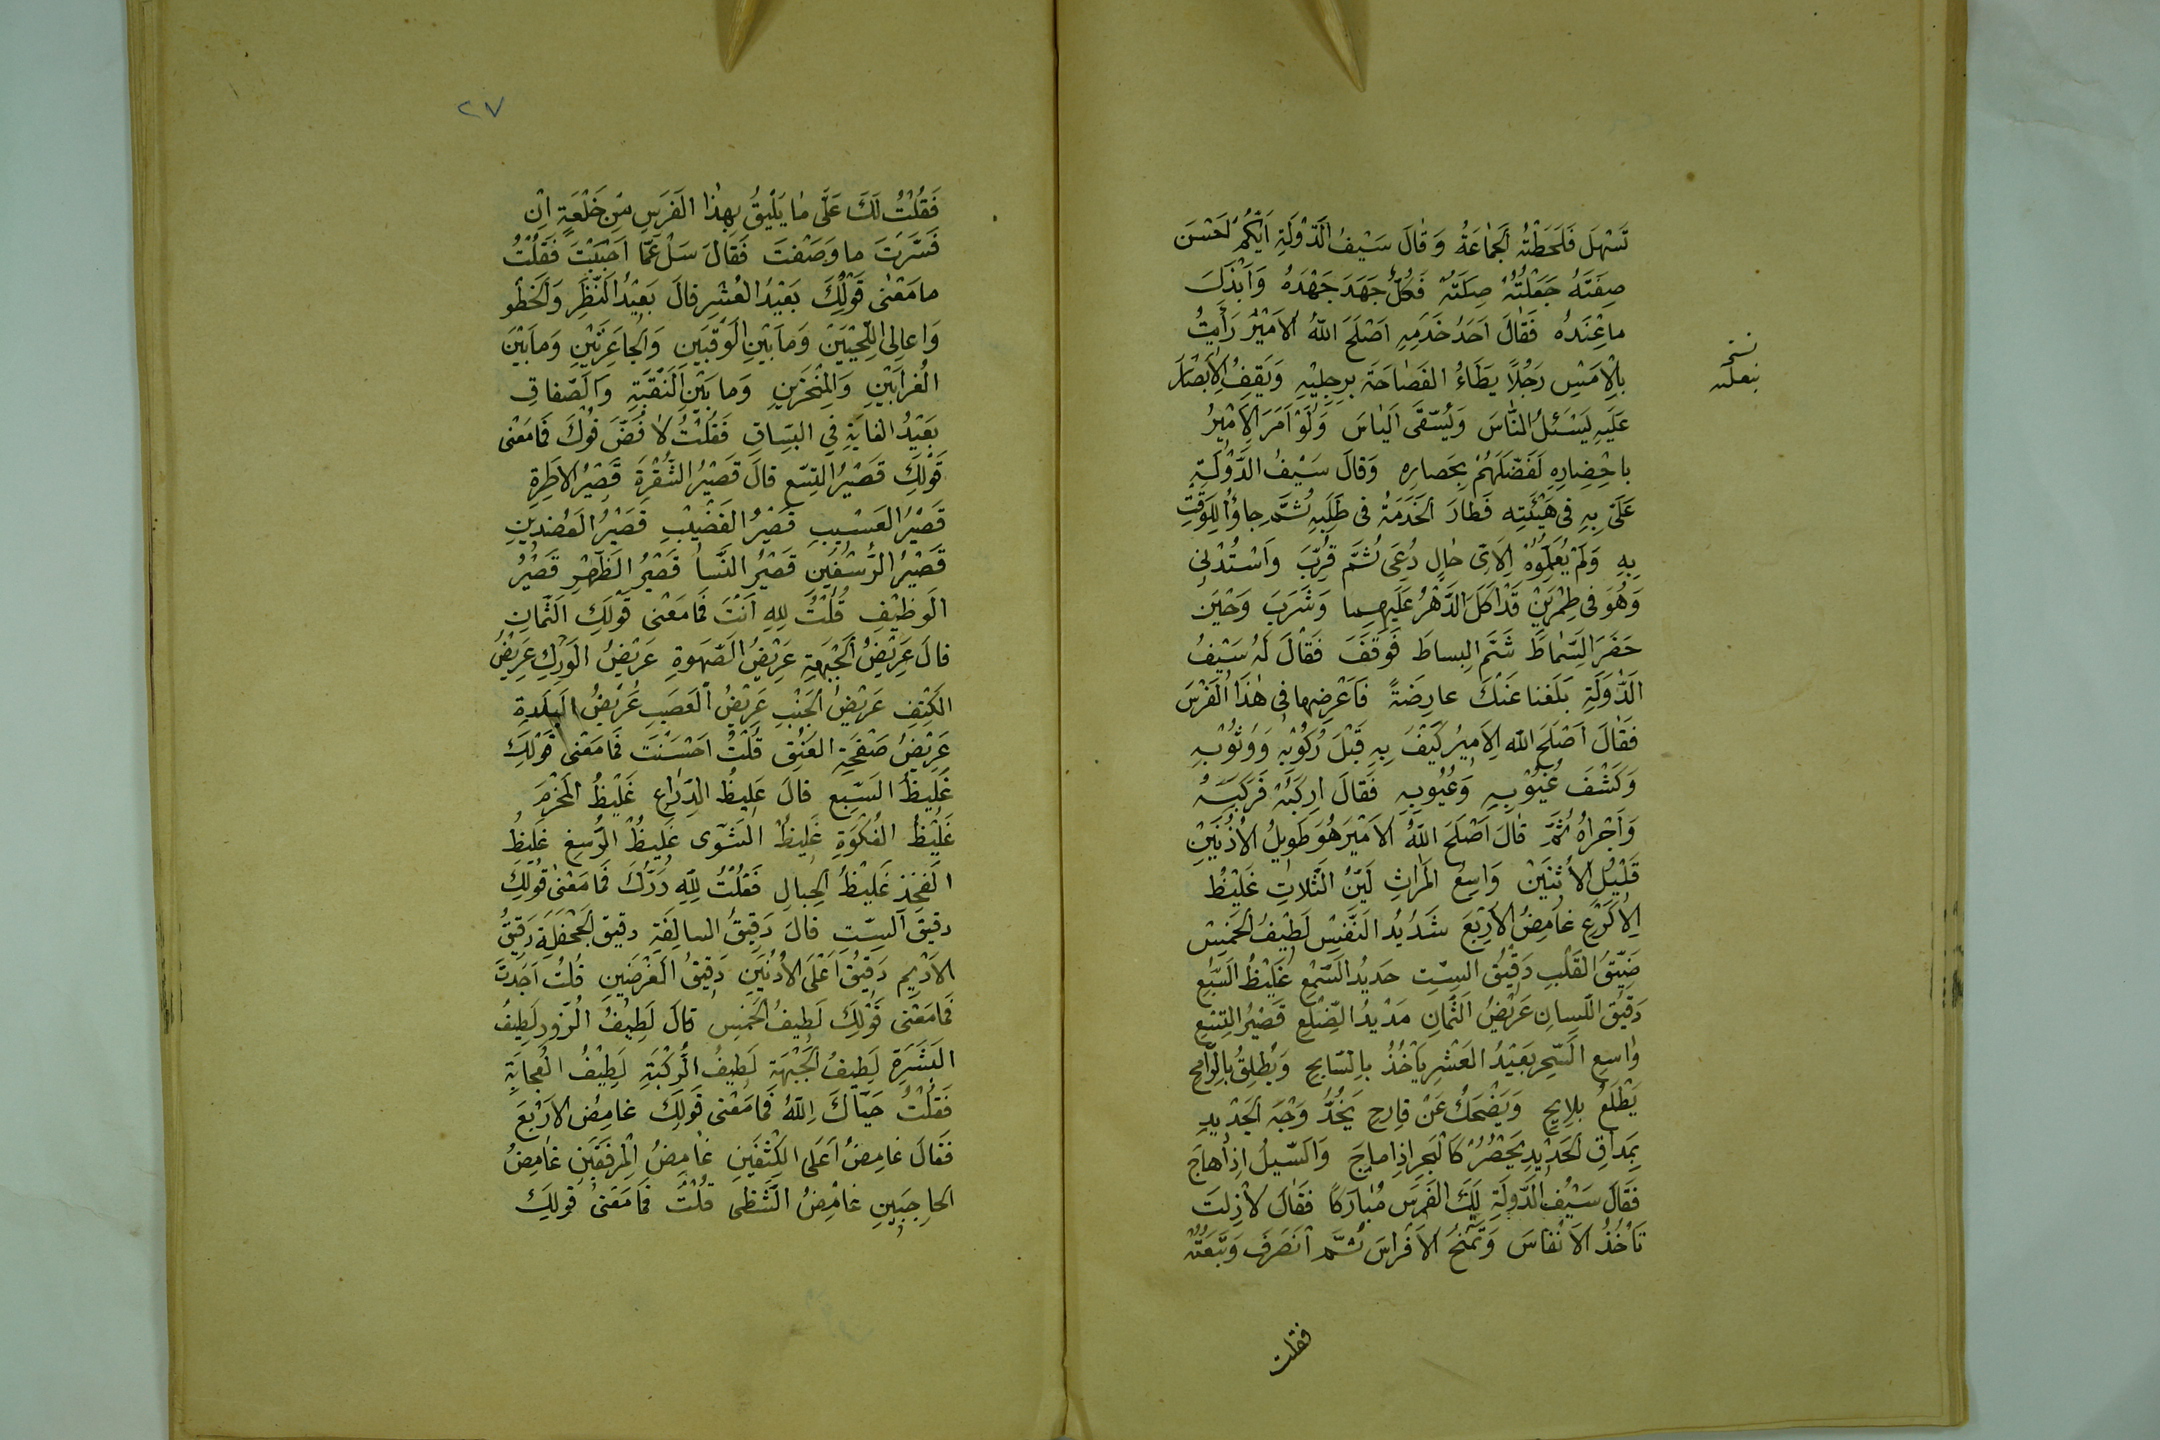 تَسَهَّلَ فَلَحَظَتْهُ الْجَمَاعَةُ وَقَالَ سَيْفُ الدَّوْلَةِ اَيُّكُمْ اَحْسَنَ
صِفَتَهُ جَعَلْتُهُ صِلَتَهُ فَكُلٌّ جَهَدَ جَهْدَهُ وَاَبْذَلَ
ما عِنْدَهُ فَقَالَ اَحَدُ خَدَمِهِ اَصْلَحَ اللهُ الاَمْيْرَ رَأَيْتُ
نسخه
بنعليه
بِالْاَمْسِ رَجُلًا يَطَاءُ الفَصَاحَةَ بِرِجِلَيْهِ وَتَقِفُ الاَبْصَارُ
عَلَيهِ يَسْئَلُ النَّاسَ وَيُسَقَّى اليَاسَ وَلَوْ اَمَرَ الاَمْيرُ
باحْضِارِهِ لَفَضَّلَهُمْ بِحَصارِهِ وَقالَ سَيْفُ الدَّوْلَةِ
عَلَىَّ بِهِ فى هَيْئَتِهِ فَطارَ الخَدَمَةُ فى طَلَبِهِ ثُمَّ جاؤُا لِلوَقْتِ
بِهِ وَلَمْ يُعَلِّمُوُهُ لِاَىِّ حالٍ دُعِىَ ثُمَّ قُرِّبَ وَاسْتُدْنِىَ
وَهُوَ فى طِمْرَيْنِ قَدْ اَكَلَ الدَّهْرُ عَلَيهِما وَشَرَبَ وَحْيَن
حَضَرَ السِّمَاطَ شَتَمَ البِساطَ فَوَقَفَ فَقَالَ لَهُ سَيْفُ
الدَّوْلَةِ بَلَغَنا عَنْكَ عارِضَةً فَاَعْرِضْها فى هٰذَا الْفَرَسَ
فَقَالَ اَصْلَحَ اللهُ الاَميرَ كَيْفَ بِهِ قَبْلَ رُكُوْبِهِ وَوُثُوْبِهِ
وَكَشْفَ عُيُوْبِهِ وَغُيُوبِهِ فَقَالَ ارِكَبْهُ فَرَكِبَهُ
وَاَجْراهُ ثُمَّ قالَ اَصْلَحَ اللهُ الاَمْيرَ هُوَ طَوِيلُ الاُذُنَيْنِ
قَلْيلُ الاِثْنَيْنِ وَاسِعُ المَرَاثِ لَيِّنُ الثَّلَاثِ غَلَيْظُ
الاَكْرُعِ غامِضُ الاَرْبَعِ شَدْيُدُ النَّفَسِ لَطْيفُ الْخَمِيْس
ضَيِّقُ القَلْبِ دَقْيْقُ السِّتِ حَديُد السَّمْعِ غَلَيْظُ السَّبْعِ
دَقْيُق اللِّسانِ عَرْيُضُ الثَّمانِ مَدْيدُ الضِّلْعِ قَصْيُر التِّسْعِ
واسِعِ السَّحِرِ بَعْيدُ العَشْرِ يَأْخُذُ بالسَّابِحِ وَيُطْلِقُ بِالرَّامِحِ
يَطْلَعُ بلايِحٍ وَيَضْحَكُ عَنْ قارِحٍ يَخُدُّ وَجْهَ الْجَدْيدِ
بِمَداقِ الحَدْيدِ يُحْضِرُ كَالْبَحِرِ اذِا ماجَ وَالسَّيلُ اذِا هاجَ
فَقَالَ سَيْفُ الدَّوْلَةِ لَكَ الفَرَسَ مُبارَكًا فَقَالَ لا زِلتَ
تَأْخُذُ الاَنْفاسَ وَتَمْنَحُ الاَفْراسَ ثُمَّ انْصَرَفَ وَتَبِعْتُهُ
فقلت
٢٧
فَقُلْتُ لَكَ عَلَىَّ مٰا يَلْيقُ بِهٰذا الفَرَسِ مِنْ خَلْعَةٍ اِنْ
فَسَّرْتَ ما وَصَفْتَ فَقَالَ سَلْ عَمَّا اَحْبَبْتَ فَقُلْتُ
ما مَعْنٰى قَوْلِكَ بَعْيُد العُشْرِ قالَ بَعْيدُ النَّظَرِ وَالخَطْوِ
وَاعالِى اللَّحْيَيْنِ وَما بَيْنِ الوَقْبَينِ وَالْجاعِرَتَيْنِ وَما بَيْنَ
الْغُرابَيْنِ وَالمِنْخَرَينِ وَما بَيْنَ النَّقْبَةِ وَالصِّفاقِ
بَعْيْدُ الغايَةِ فِى السِّباقِ فَقُلْتُ لا فُضَّ فُوْكَ فَما مَعْنٰى
قَوْلِكَ قَصْيُرُ التِسْعِ قالَ قَصْيُر الشَّعْرَةِ قَصْيُر الاطَرِةِ
قَصْيُر العَسيْبِ قَصْيُر القَضْيْبِ قَصْيُر العَضُدَيْنِ
قَصْيُر الرُّسْغَيْنِ قَصْيُر النَّسا قَصْيُر الظَّهْرِ قَصْيُرُ
الوَظْيْفِ قُلْتُ للهِ اَنْتَ فَما مَعْنٰى قَوْلِكَ الثَّمٰانِ
قالَ عَرْيْضُ الْجَبْهَةِ عَرْيْضُ الصَّهوَةِ عَرْيْضُ الوَرِكِ عَرِيْضُ
الكَتِفِ عَرْيْضُ الْجَنْبِ عَرْيْضُ الْعَصَبِ عَرْيْضُ البَلْدَةِ
عَرْيْضُ صَفْحَةِ العُنُقِ قُلْتُ اَحْسَنْتَ فَما مَعْنٰى قَوْلِكَ
غَلْيظُ السَّبِعِ قالَ غَليظُ الذِّراعِ غَلْيظُ المَحْزِمِ
غَلْيظُ العُكْوَةِ غَليظُ الشَّوٰى غَليظُ الرُّسِغِ غَليظُ
الفَخِذِ غَليْظُ الْحِبالِ فَقُلْتُ للهِ دَرُّكَ فَما مَعْنٰى قَوْلِكَ
دقْيقُ السِّتِ قالَ دَقْيقُ السالِفَةِ دقيقُ الْجَحْفَلَةِ دَقْيقُ
الاَدْيمِ دَقْيقُ اَعْلَى الاُذُنَيْنِ دَقْيقُ الغَرْضَينِ قُلْتُ اَجَدْتَ
فَما مَعْنٰى قَوْلِكَ لَطيفُ الْخَمِس قالَ لَطيفُ الزَّوْرِ لَطيفُ
النَسْرِةِ لَطيفُ الْجَبْهَةِ لَطيفُ الرُّكْبَةِ لَطْيْفُ الْعُجايَةِ
فَقُلْتُ حَيّاكَ اللهُ فَما مَعْنٰى قَوْلِكَ غامِضُ الاَرْبَعِ
فَقَالَ غامِضُ اَعلى الكِتْفَينِ غامِضُ الْمِرفَقَيْنِ غامِضُ
الحاجِبَينِ غامِضُ الشَّظٰى قُلْتُ فَما مَعْنٰى قَولِكَ